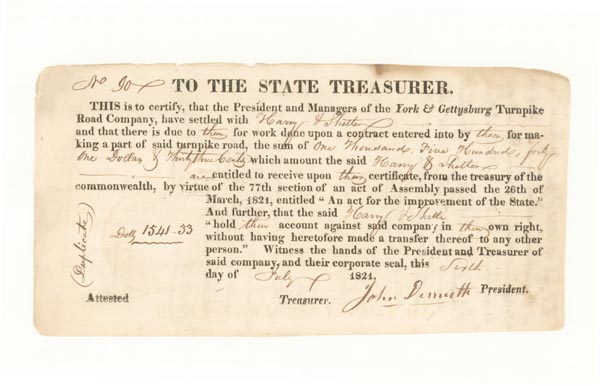 No 90 TO THE STATE TREASURER.
THIS is to certify, that the President and Managers of the York & Gettysburg Turnpike
Road Company, have settled with Harry & Shetter
and that there is due to them for work done upon a contract entered into by them for ma-
king a part of said turnpike road, the sum of One Thousands. Five Hundred. forty
One Dollars & Thirty three Cents which amount the said Harry & Shetter
are entitled to receive upon their certificate, from the treasury of the
commonwealth, by virtue of the 77th section of an act of Assembly passed the 26th of
March, 1821, entitled "An act for the improvement of the State."
And further, that the said Harry & Shetter
Dolls 1541.33 "hold their account against said company in their own right,
without having heretofore made a transfer thereof to any other
person." Witness the hands of the President and Treasurer of
said company, and their corporate seal, this Sixth
day of July 1821.
(Duplicate)
John Demuth President.
Attested Treasurer.